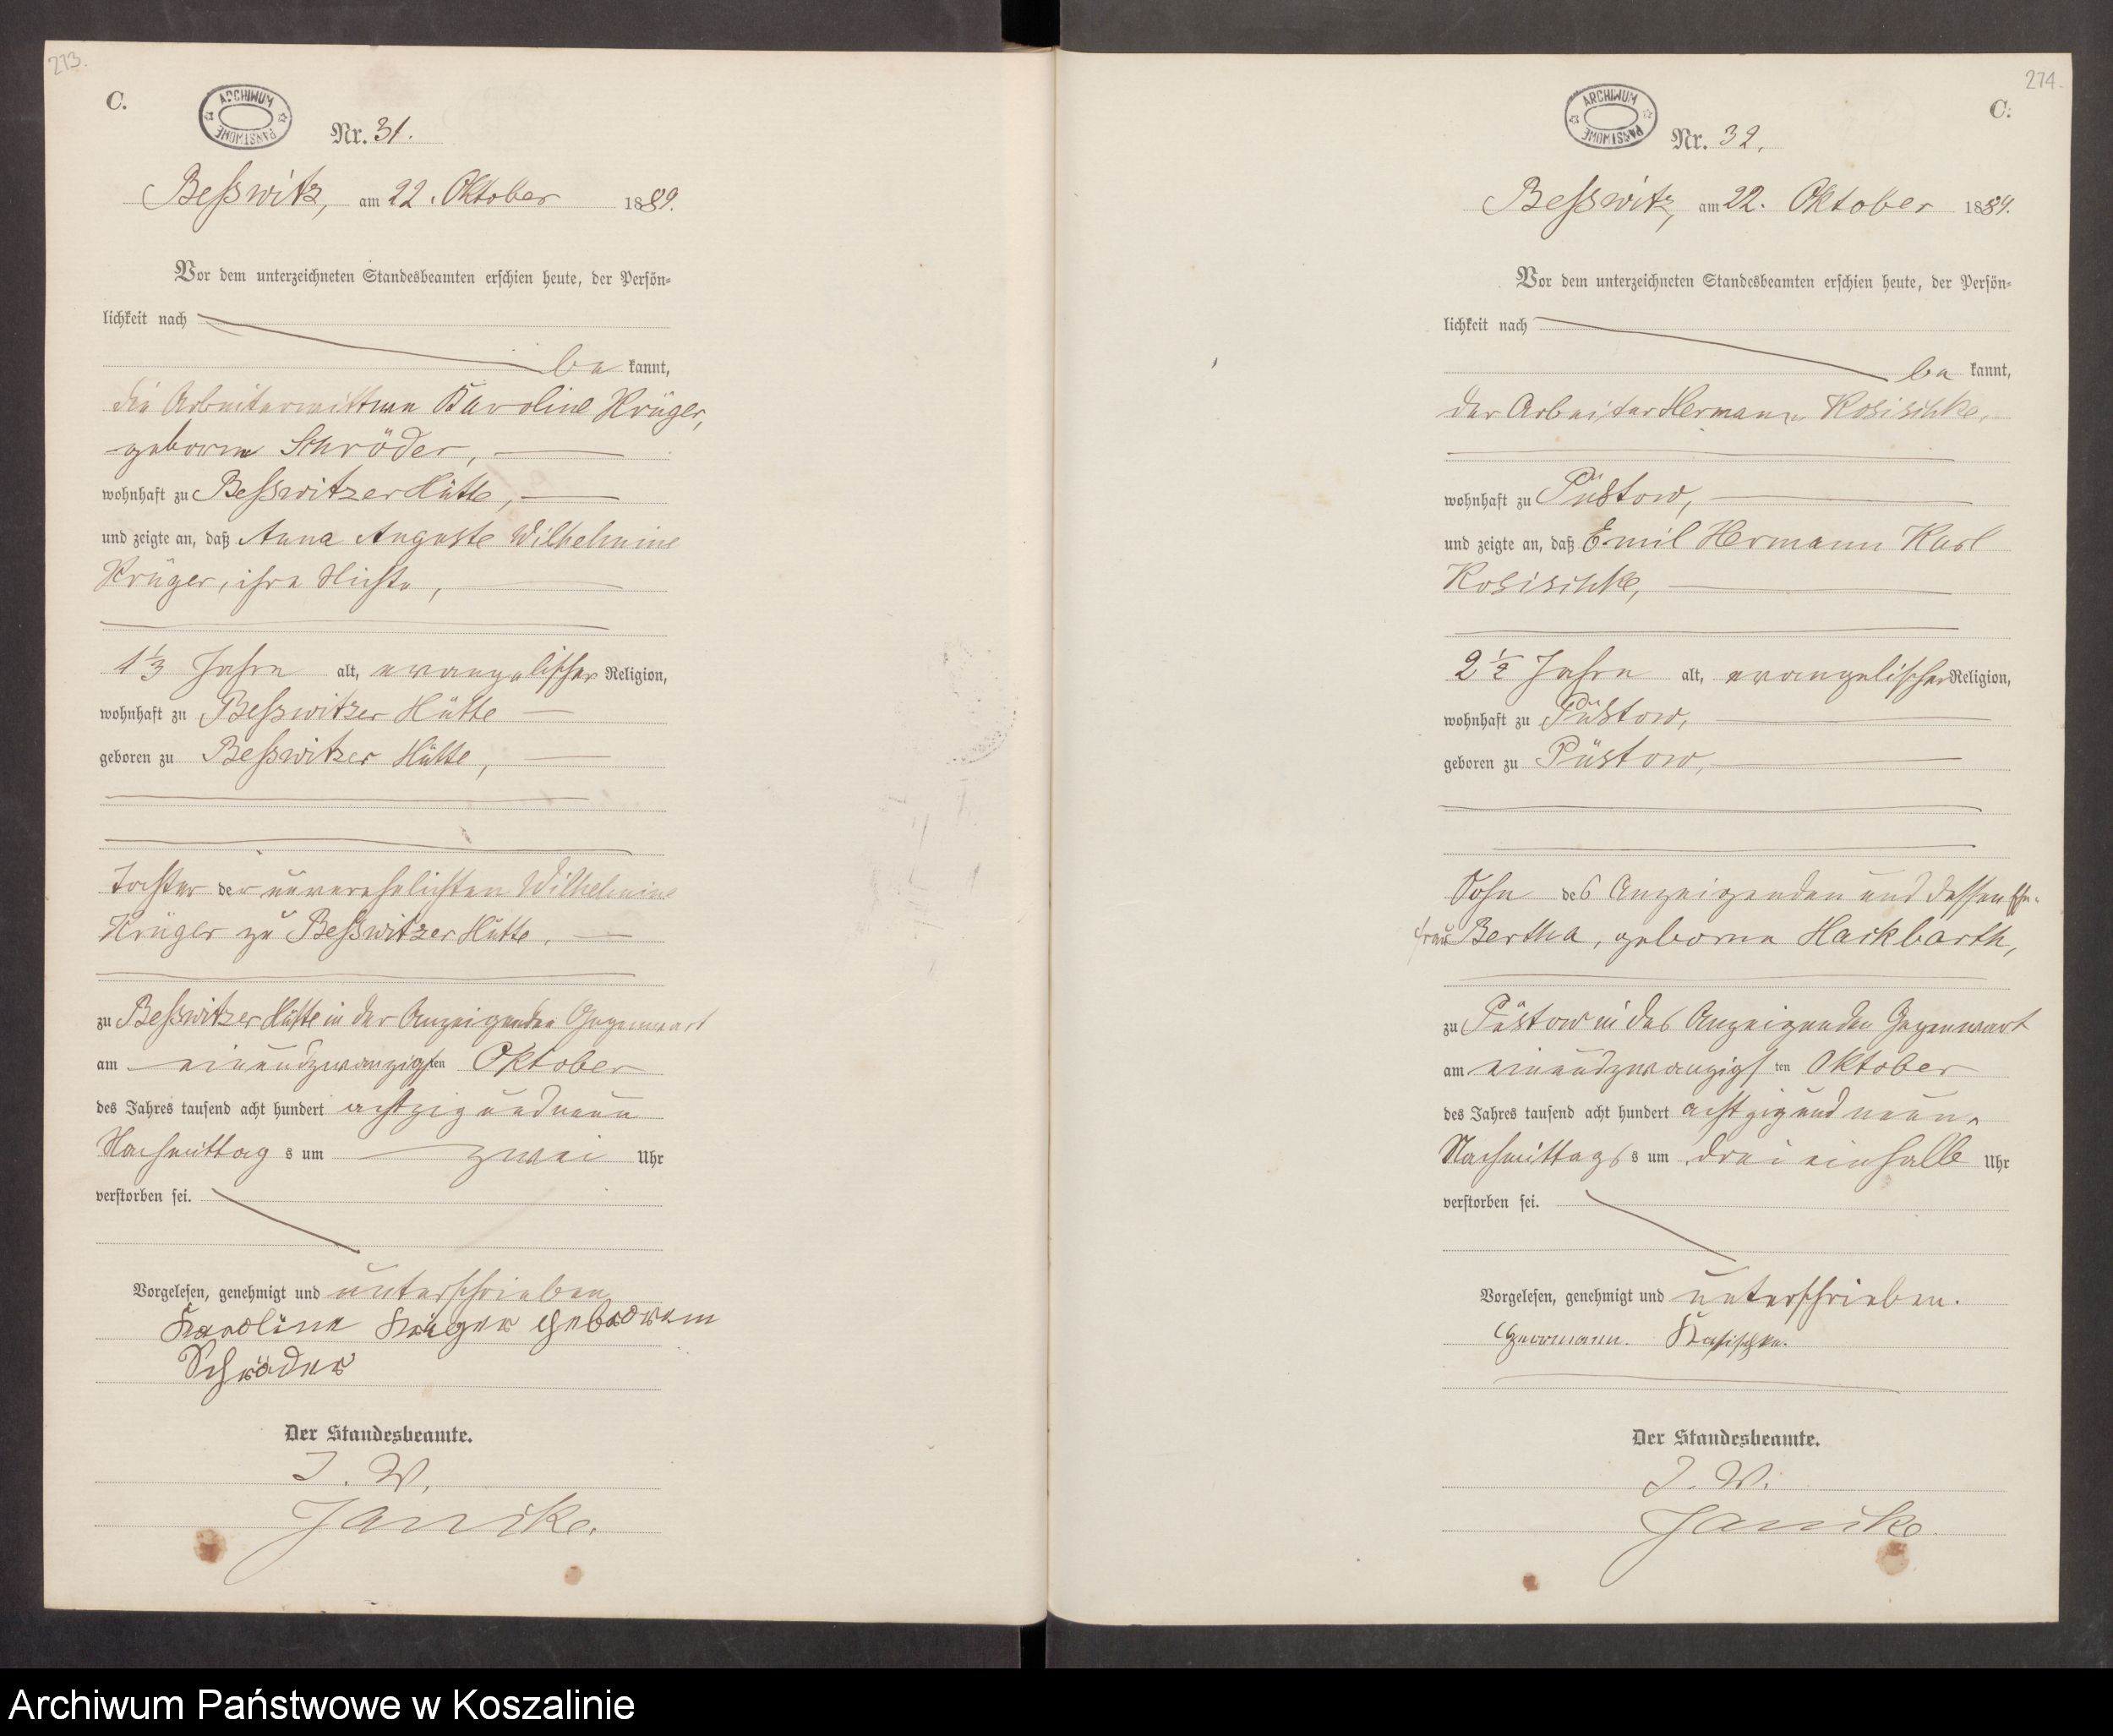 273.
C.
ARCHIWUM
PAŃSTWOWE
Nr. 31.
Beßwitz, am 22. Oktober 1889.
Vor dem unterzeichneten Standesbeamten erschien heute, der Persön-
lichkeit nach
be kannt,
die Arbeiterwittwe Karoline Krüger,
geborne Schröder,
wohnhaft zu Beßwitzer Hütte,
und zeigte an, daß Anna Auguste Wilhelmine
Krüger, ihre Nichte,
1 1/3 Jahre alt, evangelischer Religion,
wohnhaft zu Beßwitzer Hütte
geboren zu Beßwitzer Hütte,
Tochter der unverehelichten Wilhelmine
Krüger zu Beßwitzer Hütte,
zu Beßwitzer Hütte in der Anzeigenden Gegenwart
am einundzwanzigsten Oktober
des Jahres tausend acht hundert achtzig und neun
Nachmittag s um zwei Uhr
verstorben sei.
Vorgelesen, genehmigt und unterschrieben
Karoline Krüger geboren
Schröder
Der Standesbeamte.
J. V.
Janike.
274.
C.
ARCHIWUM
PAŃSTWOWE
Nr. 32.
Beßwitz, am 22. Oktober 1889.
Vor dem unterzeichneten Standesbeamten erschien heute, der Persön-
lichkeit nach
be kannt,
der Arbeiter Hermann Kosischke,
wohnhaft zu Püstow,
und zeigte an, daß Emil Hermann Karl
Kosischke,
2 1/2 Jahre alt, evangelischer Religion,
wohnhaft zu Püstow,
geboren zu Püstow,
Sohn des Anzeigenden und dessen Ehe-
frau Bertha, geborne Hackbarth,
zu Püstow in des Anzeigenden Gegenwart
am einundzwanzigsten Oktober
des Jahres tausend acht hundert achtzig und neun
Nachmittags s um drei einhalb Uhr
verstorben sei.
Vorgelesen, genehmigt und unterschrieben.
Herrmann. Kasischke.
Der Standesbeamte.
J. V.
Janike.
Archiwum Państwowe w Koszalinie